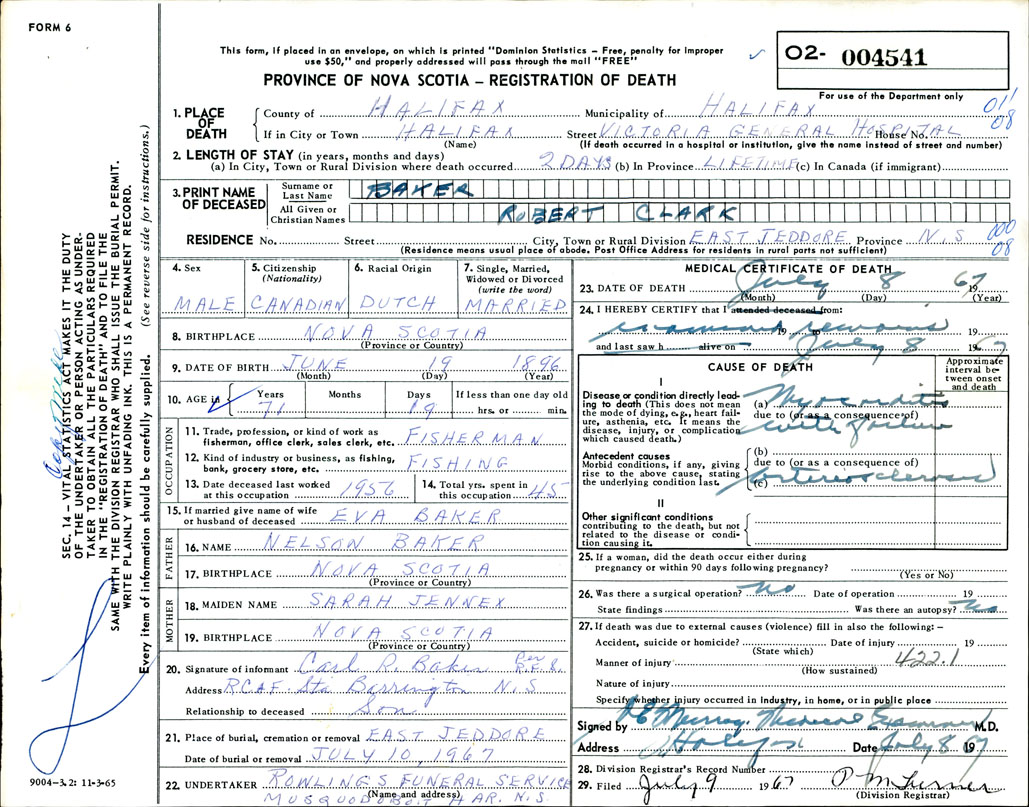 FORM 6
This form, if placed in an envelope, on which is printed "Dominion Statistics – Free, penalty for improper
use $50," and properly addressed will pass through the mail "FREE"
02- 004541
PROVINCE OF NOVA SCOTIA – REGISTRATION OF DEATH
For use of the Department only
011
08
1. PLACE OF DEATH
County of HALIFAX Municipality of HALIFAX
If in City or Town HALIFAX Street VICTORIA GENERAL HOSPITAL House No.
(Name) (If death occurred in a hospital or institution, give the name instead of street and number)
2. LENGTH OF STAY (in years, months and days)
(a) In City, Town or Rural Division where death occurred 2 DAYS (b) In Province LIFETIME (c) In Canada (if immigrant)
3. PRINT NAME OF DECEASED
Surname or Last Name BAKER
All Given or Christian Names ROBERT CLARK
RESIDENCE No. Street City, Town or Rural Division EAST JEDDORE Province N.S
000
08
(Residence means usual place of abode. Post Office Address for residents in rural parts not sufficient)
4. Sex MALE
5. Citizenship (Nationality) CANADIAN
6. Racial Origin DUTCH
7. Single, Married, Widowed or Divorced (write the word) MARRIED
8. BIRTHPLACE NOVA SCOTIA
(Province or Country)
9. DATE OF BIRTH JUNE 19 1896
(Month) (Day) (Year)
10. AGE is Years Months Days If less than one day old
71 19 hrs. or min.
OCCUPATION
11. Trade, profession, or kind of work as
fisherman, office clerk, sales clerk, etc. FISHERMAN
12. Kind of industry or business, as fishing,
bank, grocery store, etc. FISHING
13. Date deceased last worked
at this occupation 1956
14. Total yrs. spent in
this occupation 45
15. If married give name of wife
or husband of deceased EVA BAKER
FATHER
16. NAME NELSON BAKER
17. BIRTHPLACE NOVA SCOTIA
(Province or Country)
MOTHER
18. MAIDEN NAME SARAH JENNEX
19. BIRTHPLACE NOVA SCOTIA
(Province or Country)
20. Signature of informant Carl R. Baker Per
Address RCAF. Stn Barrington N.S
Relationship to deceased Son
21. Place of burial, cremation or removal EAST JEDDORE
Date of burial or removal JULY 10, 1967
22. UNDERTAKER ROWLINGS FUNERAL SERVICE
(Name and address)
MUSQUODOBOIT HAR. N.S.
MEDICAL CERTIFICATE OF DEATH
23. DATE OF DEATH July 8 1967
(Month) (Day) (Year)
24. I HEREBY CERTIFY that I attended deceased from:
examined 19 to remains 19
and last saw h alive on July 8 1967
CAUSE OF DEATH
Approximate interval between onset and death
I
Disease or condition directly leading to death (This does not mean the mode of dying, e.g., heart failure, asthenia, etc. It means the disease, injury, or complication which caused death.)
(a) Myocarditis
due to (or as a consequence of)
with failure
Antecedent causes
Morbid conditions, if any, giving rise to the above cause, stating the underlying condition last.
(b)
due to (or as a consequence of)
(c) arteriosclerosis
II
Other significant conditions
contributing to the death, but not related to the disease or condition causing it.
25. If a woman, did the death occur either during
pregnancy or within 90 days following pregnancy?
(Yes or No)
26. Was there a surgical operation? No Date of operation 19
State findings Was there an autopsy? No
27. If death was due to external causes (violence) fill in also the following: –
Accident, suicide or homicide? Date of injury 19
(State which)
Manner of injury 422.1
(How sustained)
Nature of injury
Specify whether injury occurred in Industry, in home, or in public place
Signed by Murray. Medical Examiner M.D.
Address Halifax Date July 8 1967
28. Division Registrar's Record Number
29. Filed July 9 1967 P M Turner
(Division Registrar)
SEC. 14 – VITAL STATISTICS ACT MAKES IT THE DUTY
OF THE UNDERTAKER OR PERSON ACTING AS UNDER-
TAKER TO OBTAIN ALL THE PARTICULARS REQUIRED
IN THE "REGISTRATION OF DEATH" AND TO FILE THE
SAME WITH THE DIVISION REGISTRAR WHO SHALL ISSUE THE BURIAL PERMIT.
WRITE PLAINLY WITH UNFADING INK. THIS IS A PERMANENT RECORD.
Every item of information should be carefully supplied. (See reverse side for instructions.)
9004–3.2: 11-3-65